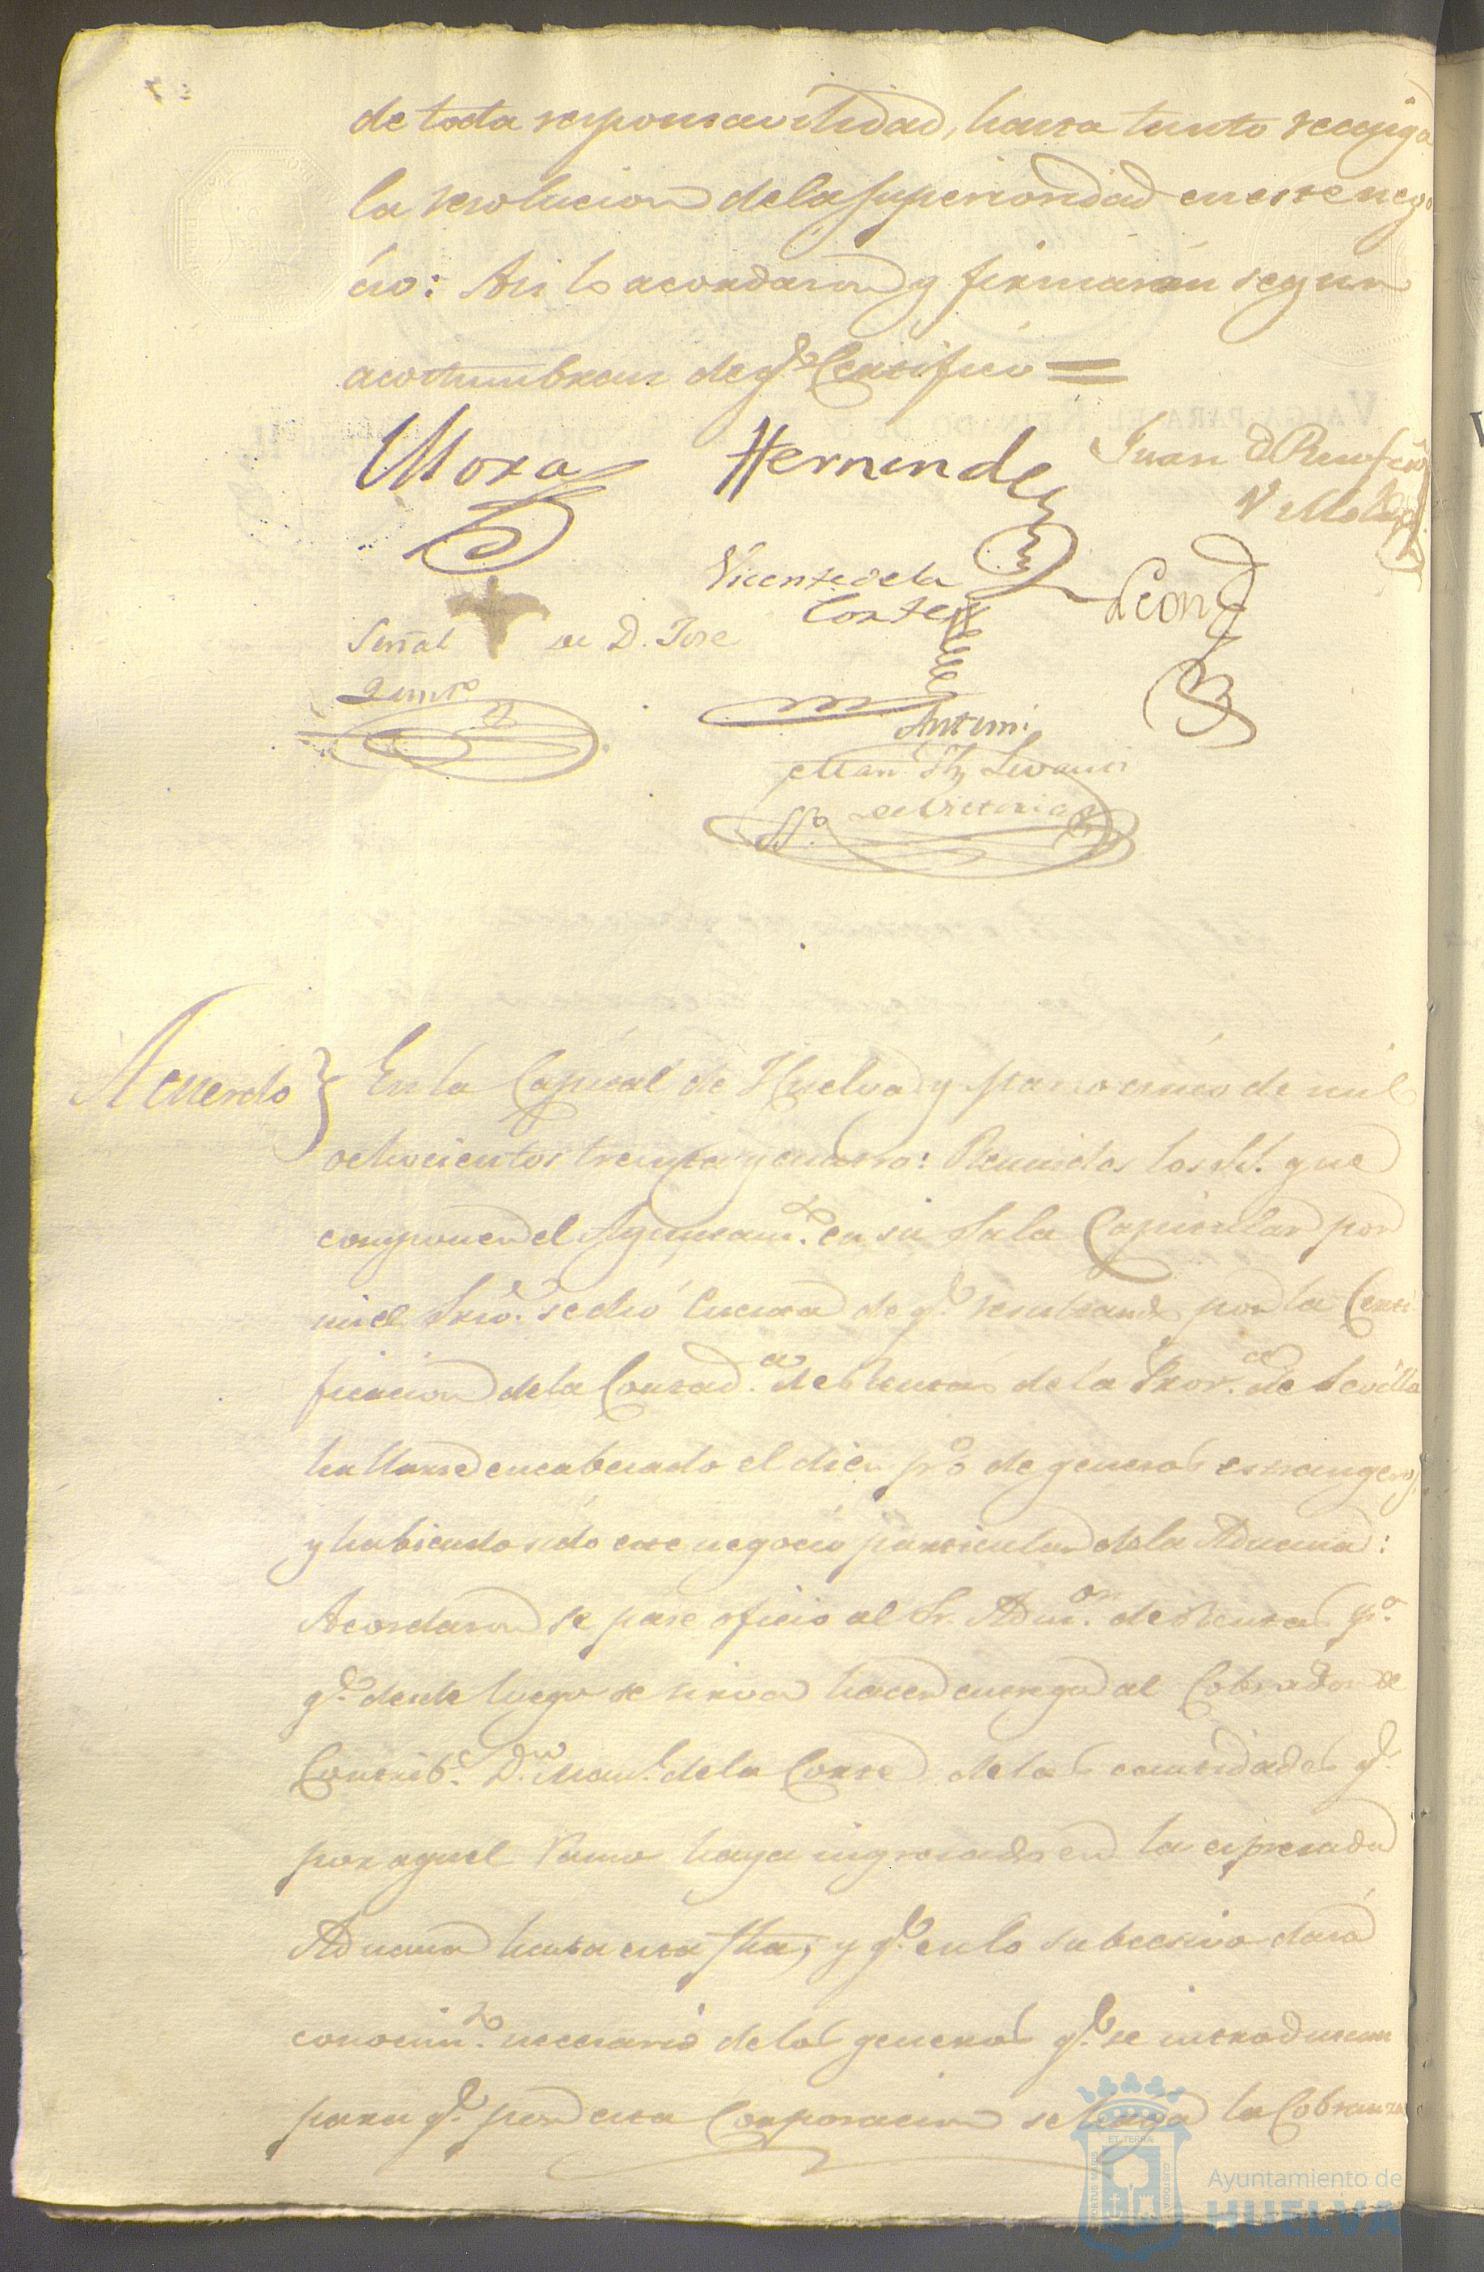 de toda responsavilidad, hasta tanto recaiga
la resolucion de la superioridad en este nego
cio: Asi lo acordaron y firmarán segun
acostumbran de q.e Certifico =
Mora Hernandez Juan
Vicente de la
Corte
Leon
Señal de D. Jose
Quint.o
Antemi
de Victoria
SS.o
Acuerdo } En la Capital de Huelva y marzo cinco de mil
ochocientos treinta y cuatro: Reunidos los SS. que
componen el Ayuntam.to en su Sala Capitular por
mi el Srio. se dió Cuenta de q.e resultando por la Certi
ficacion de la Contad.a de Rentas de la Prov.a de Sevilla
hallarse encabezado el diez p.o de generos estrangeros,
y habiendo sido este negocio particular de la Aduana:
Acordaron se pase oficio al Sr. Adm.or de Rentas p.a
q.e desde luego se sirva hacer entrega al Cobrador de
Contrib.s D.n Man.l de la Corte de las cantidades q.e
por aquel Ramo haya ingresado en la espresada
Aduana hasta esta fha, y q.e en lo subcesivo dará
conocim.to necesario de los generos q.e se introduzcan
para q.e por esta Corporacion se tenga la Cobranza
ET TERRÆ
PORTUS MARIS
CUSTODIA
Ayuntamiento de
HUELVA